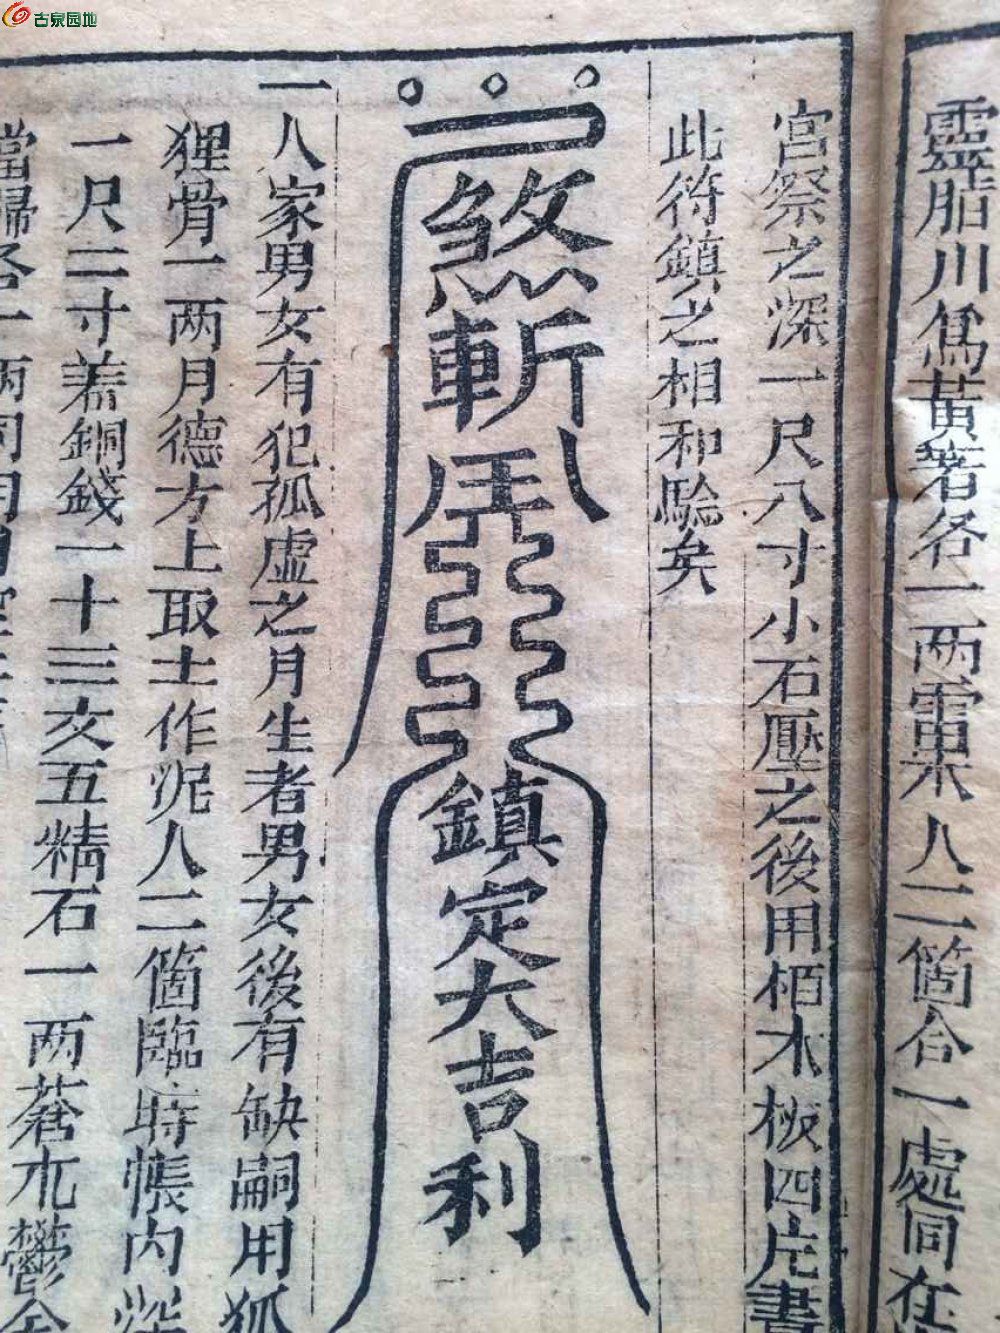 古泉园地
靈脂川爲黃著各一两雷果人二箇合一處同在
宫祭之深一尺八寸小石壓之後用栢木板四片書
此符鎮之相和驗矣
煞斬
鎮定大吉利
一人家男女有犯孤虚之月生者男女後有缺嗣用狐
狸骨一两月德方上取土作泥人二箇臨時帳内深
一尺二寸盖銅錢一十三文五精石一两蒼朮鬱金
當歸各一两同用